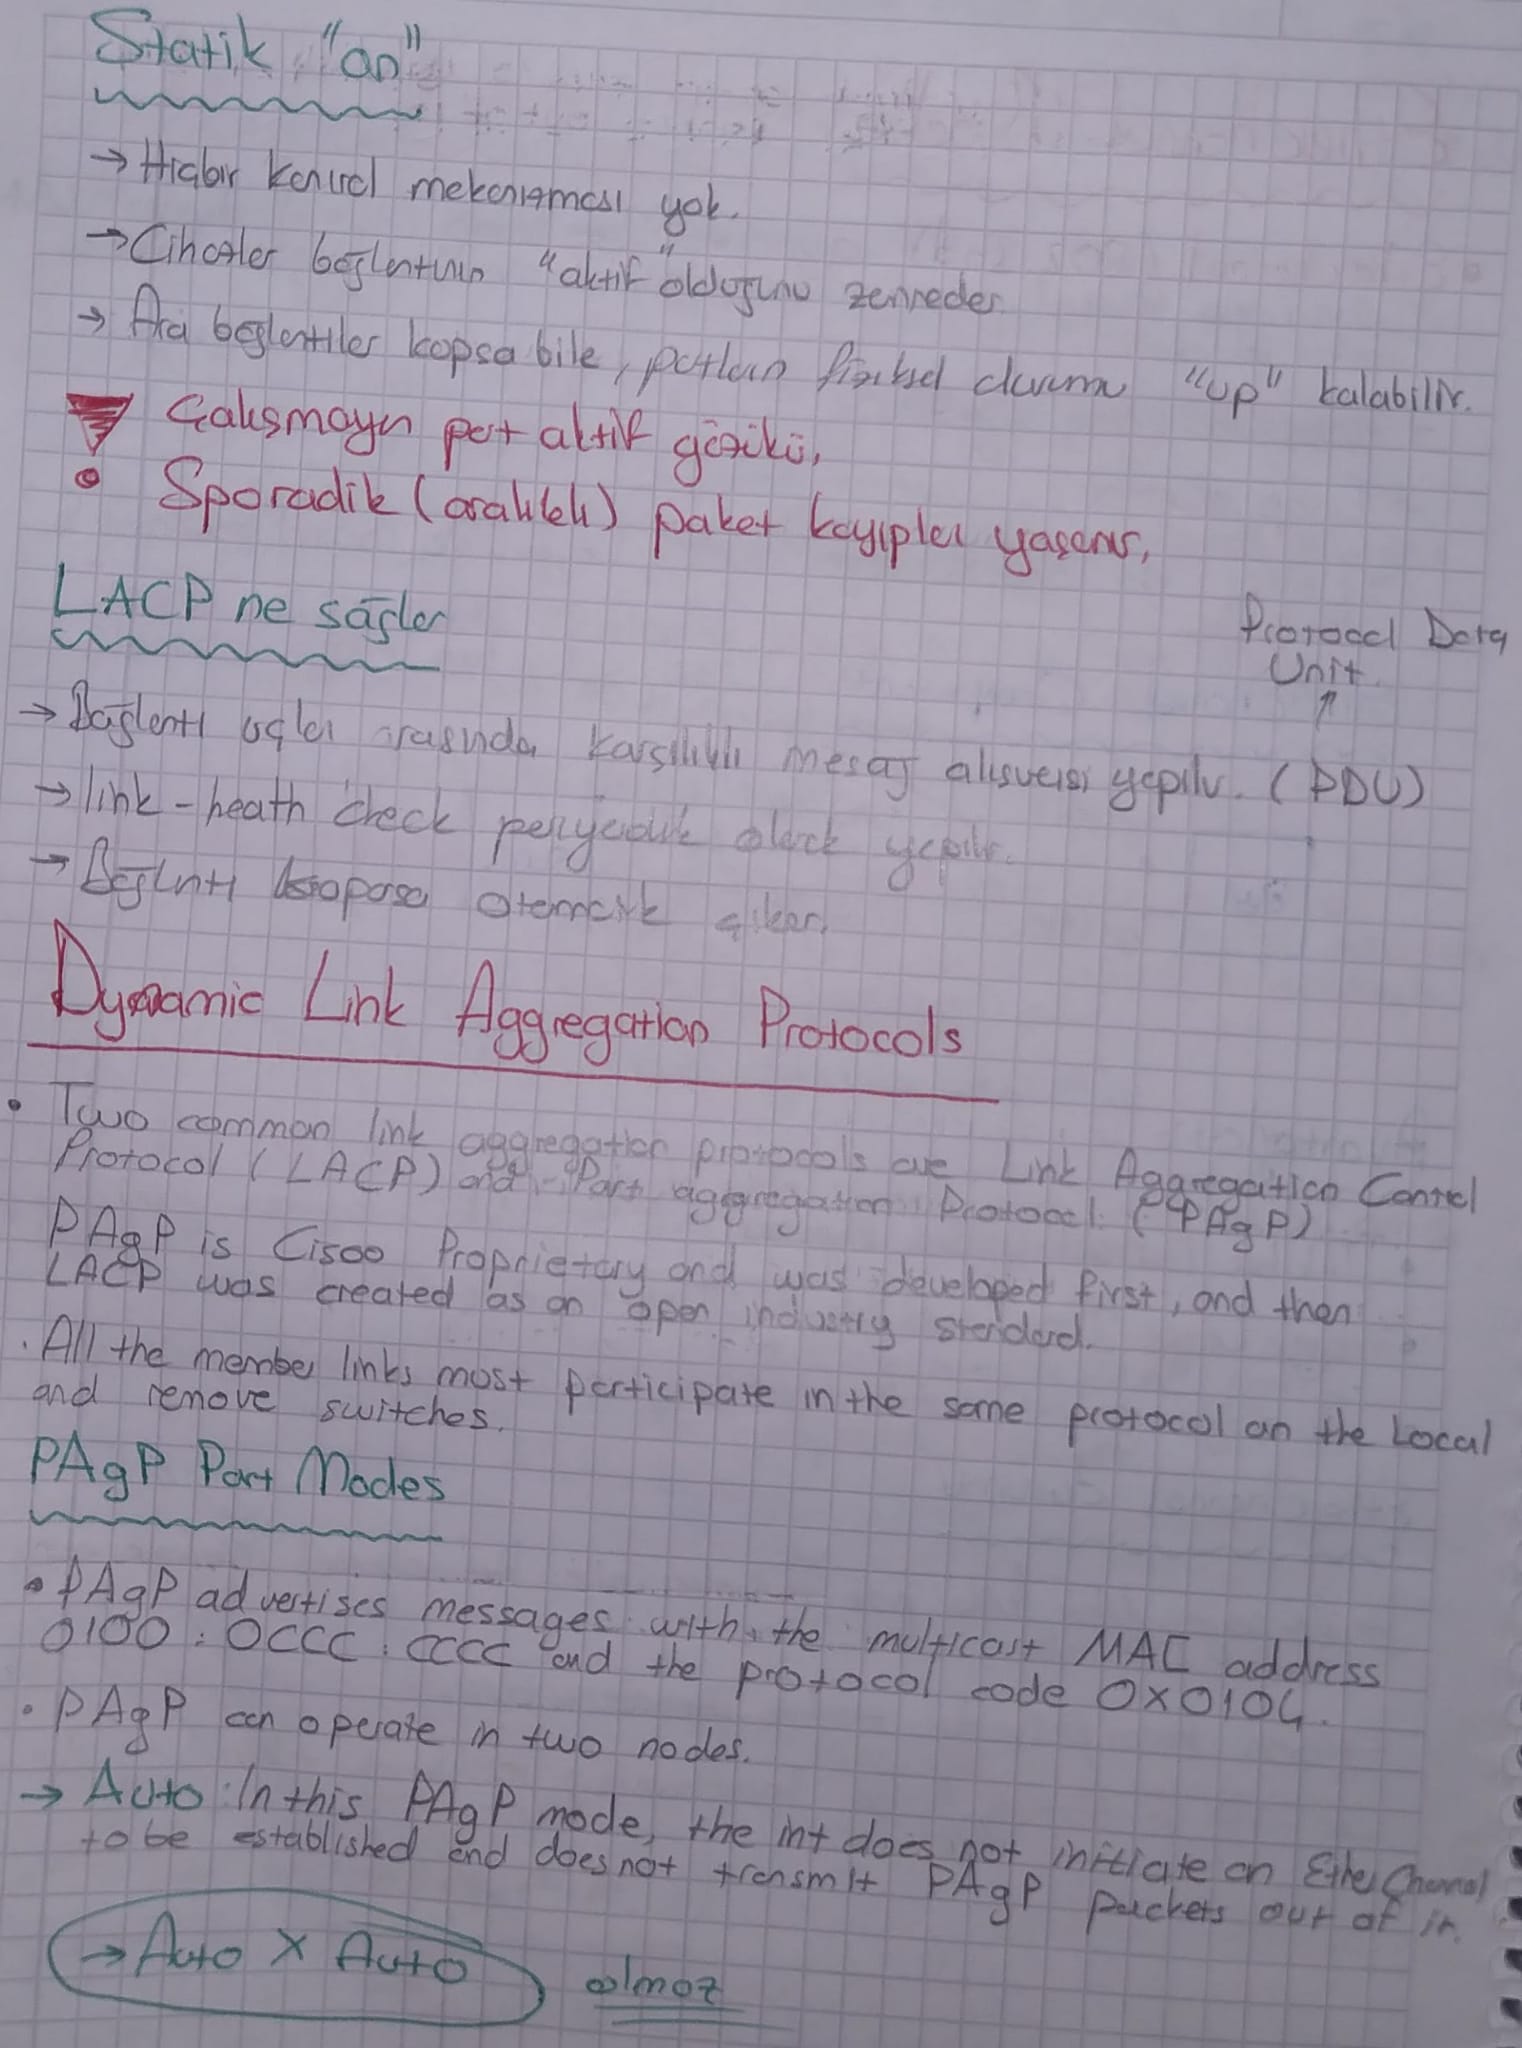 Statik "on"
→ Hiçbir kontrol mekanizması yok.
→ Cihazlar bağlantının "aktif" olduğunu zanneder
→ Ara bağlantılar kopsa bile, portların fiziksel durumu "up" kalabilir.
Çalışmayan port aktif gözükü,
Sporadik (aralıklı) paket kayıpları yaşanır,
LACP ne sağlar
Protocol Data
Unit
↑
→ Bağlantı uçları arasında karşılıklı mesaj alışverişi yapılır. (PDU)
→ link-heath check periyodik olarak yapılır.
→ Bağlntı koparsa otomatik çıkar.
Dynamic Link Aggregation Protocols
• Two common link aggregation protocols are Link Aggregation Control
Protocol (LACP) and Port aggregation Protocol (PAgP)
PAgP is Cisco Proprietary and was developed first, and then
LACP was created as an open industry standard.
. All the member links most participate in the same protocol on the Local
and remove switches.
PAgP Port Modes
• PAgP advertises messages with the multicast MAC address
0100:0CCC:CCCC and the protocol code 0x0104.
• PAgP can operate in two nodes.
→ Auto: In this PAgP mode, the int does not initiate an EtherChannel
to be established and does not transmit PAgP packets out of it.
→ Auto X Auto olmaz